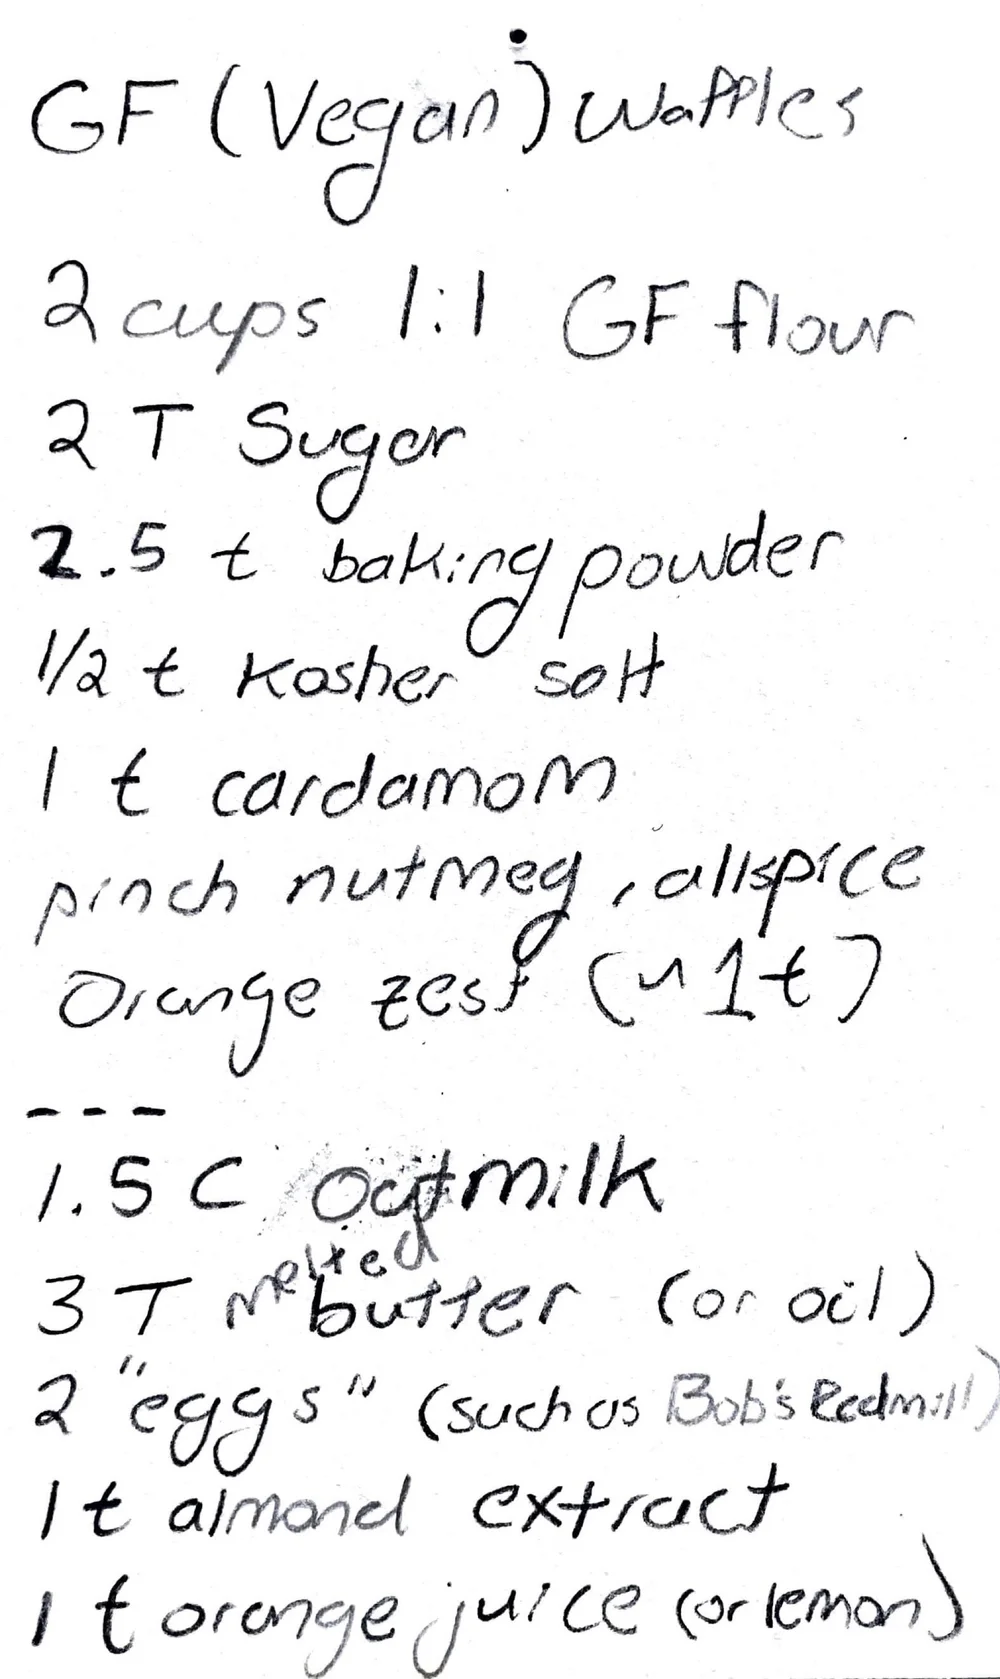 GF (Vegan) Waffles
2 cups 1:1 GF flour
2 T Sugar
2.5 t baking powder
1/2 t Kosher salt
1 t cardamom
pinch nutmeg, allspice
Orange zest (~1t)
---
1.5 C Oatmilk
3 T melted butter (or oil)
2 "eggs" (such as Bob's Redmill)
1 t almond extract
1 t orange juice (or lemon)